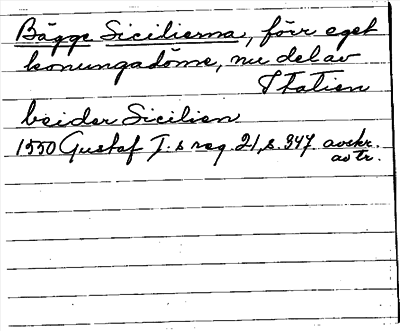 Bägge Sicilierna, förr eget
konungadöme, nu del av
Italien
beider Sicilien
1550 Gustaf I.s reg. 21, s. 347. avskr.
avtr.